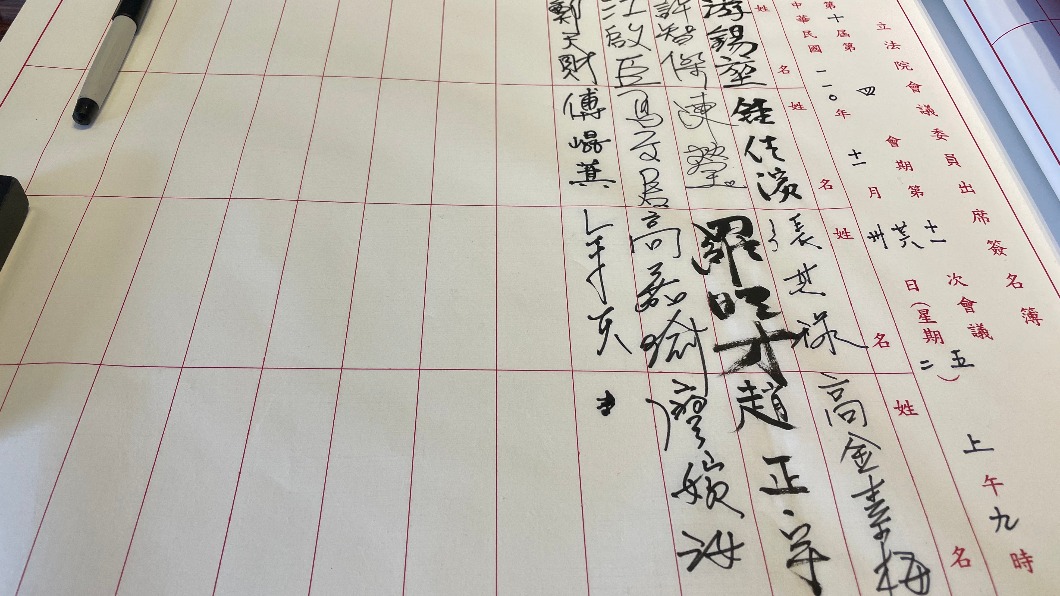 立法院會議委員出席簽名簿
第十屆第四會期第十一次會議
中華民國一一〇年十一月卅日(星期二、五)上午九時
姓名 姓名 姓名 姓名
高金素梅
張其祿
鍾佳濱
游錫堃
趙正宇
羅明才
陳瑩
許智傑
廖婉汝
高嘉瑜
馬文君
江啟臣
傅崐萁
鄭天財